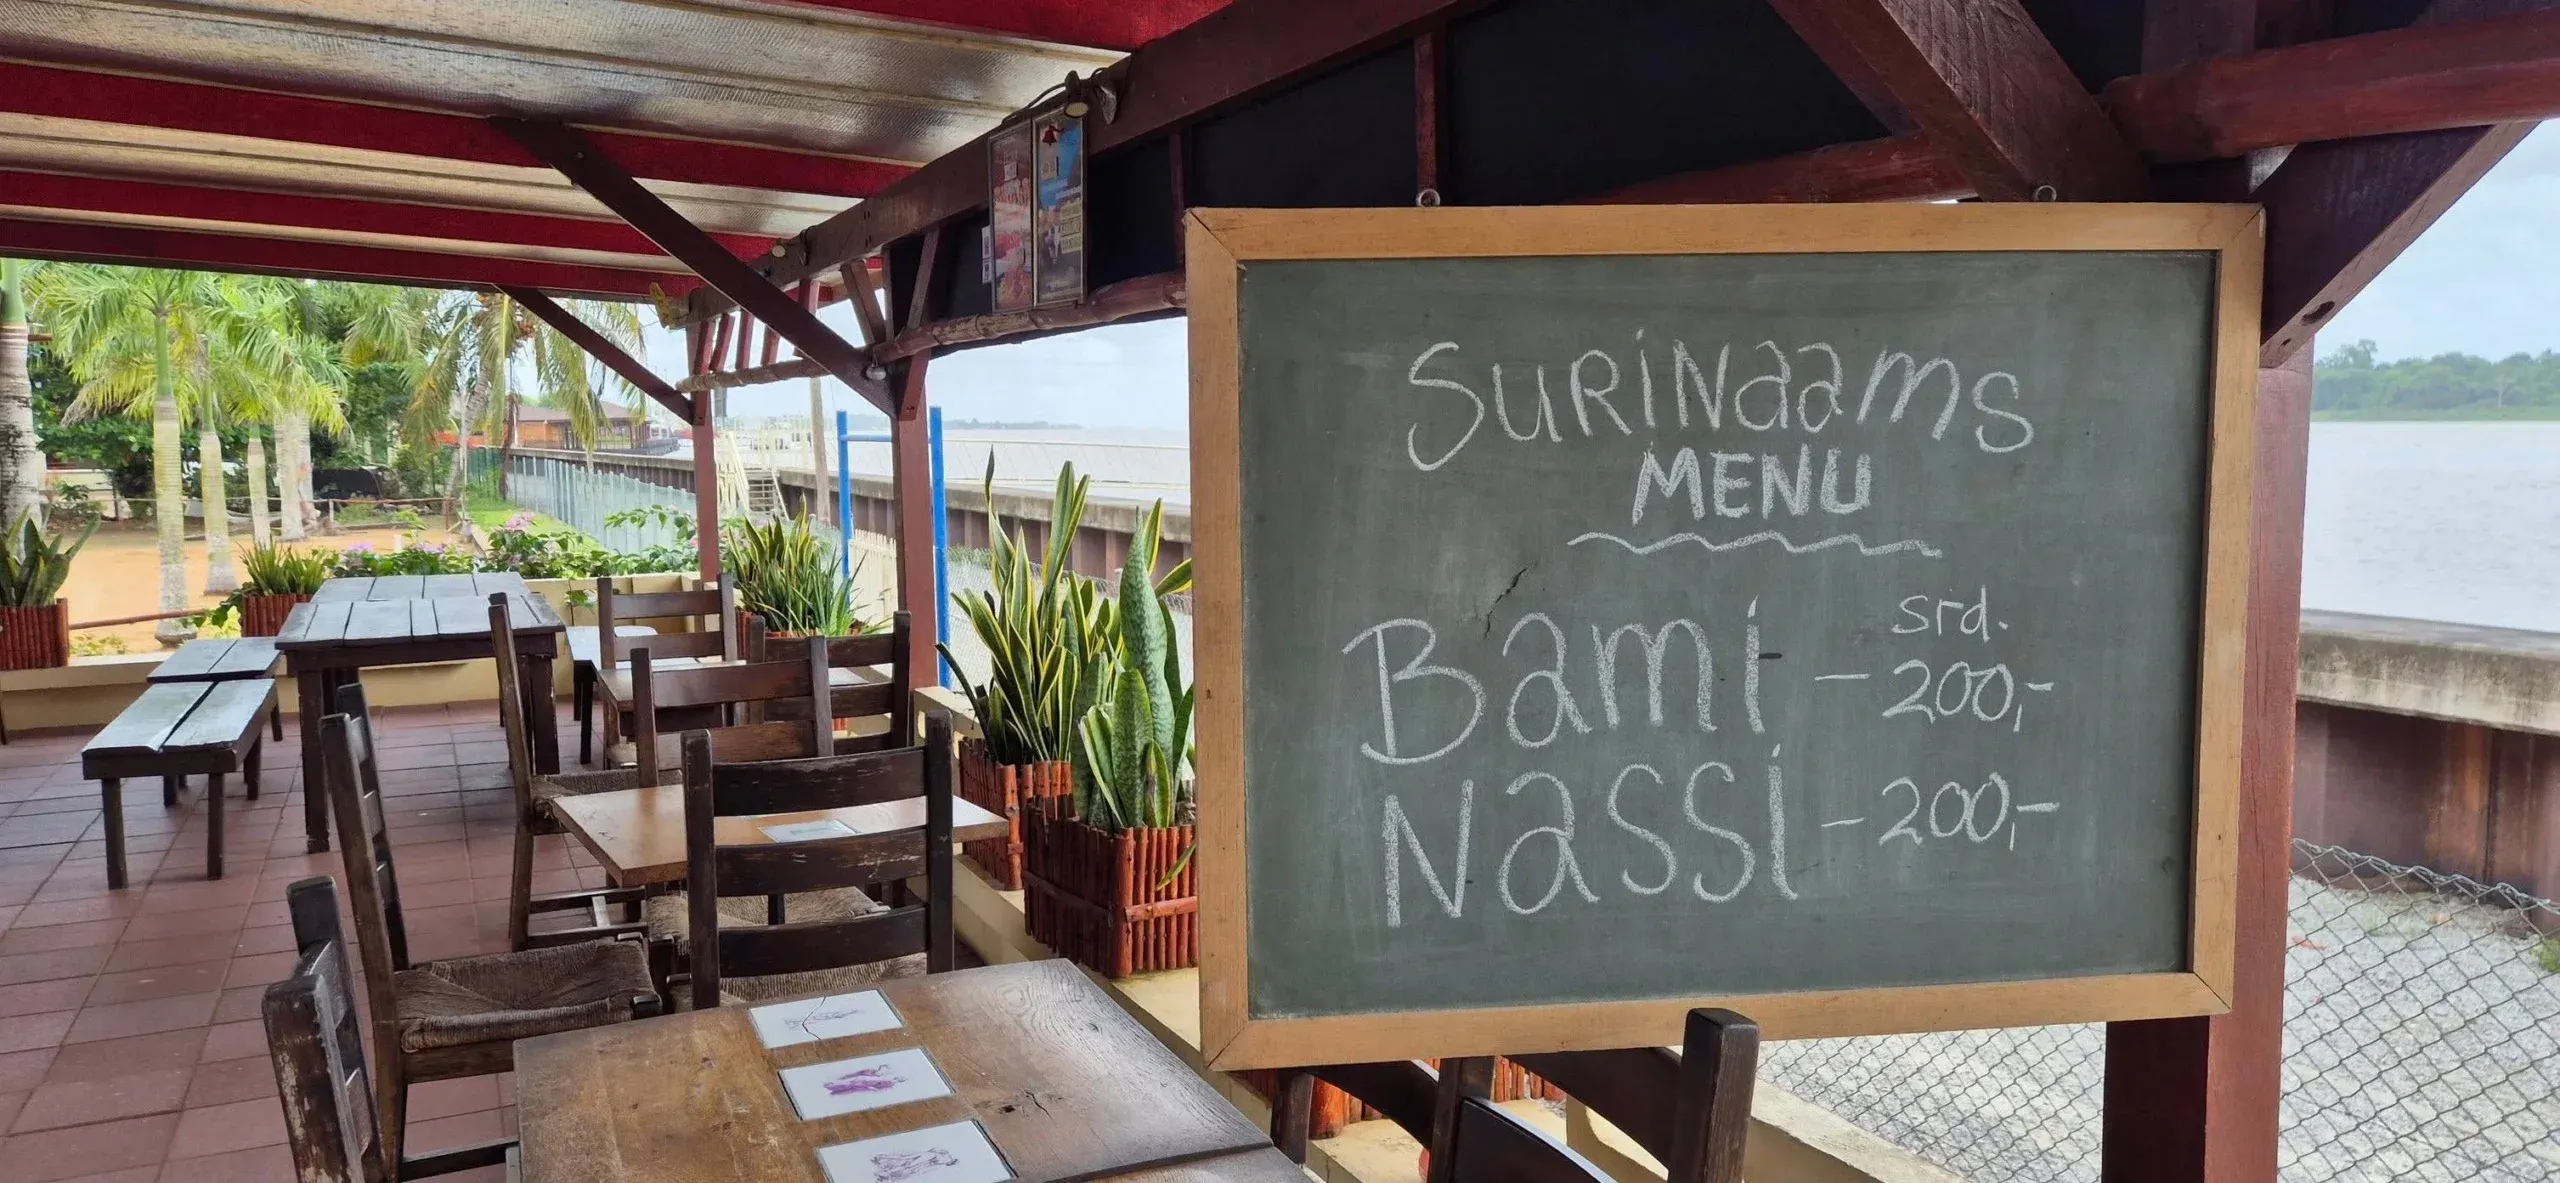 SURINaams
MENU
srd.
Bami - 200,-
Nassi - 200,-